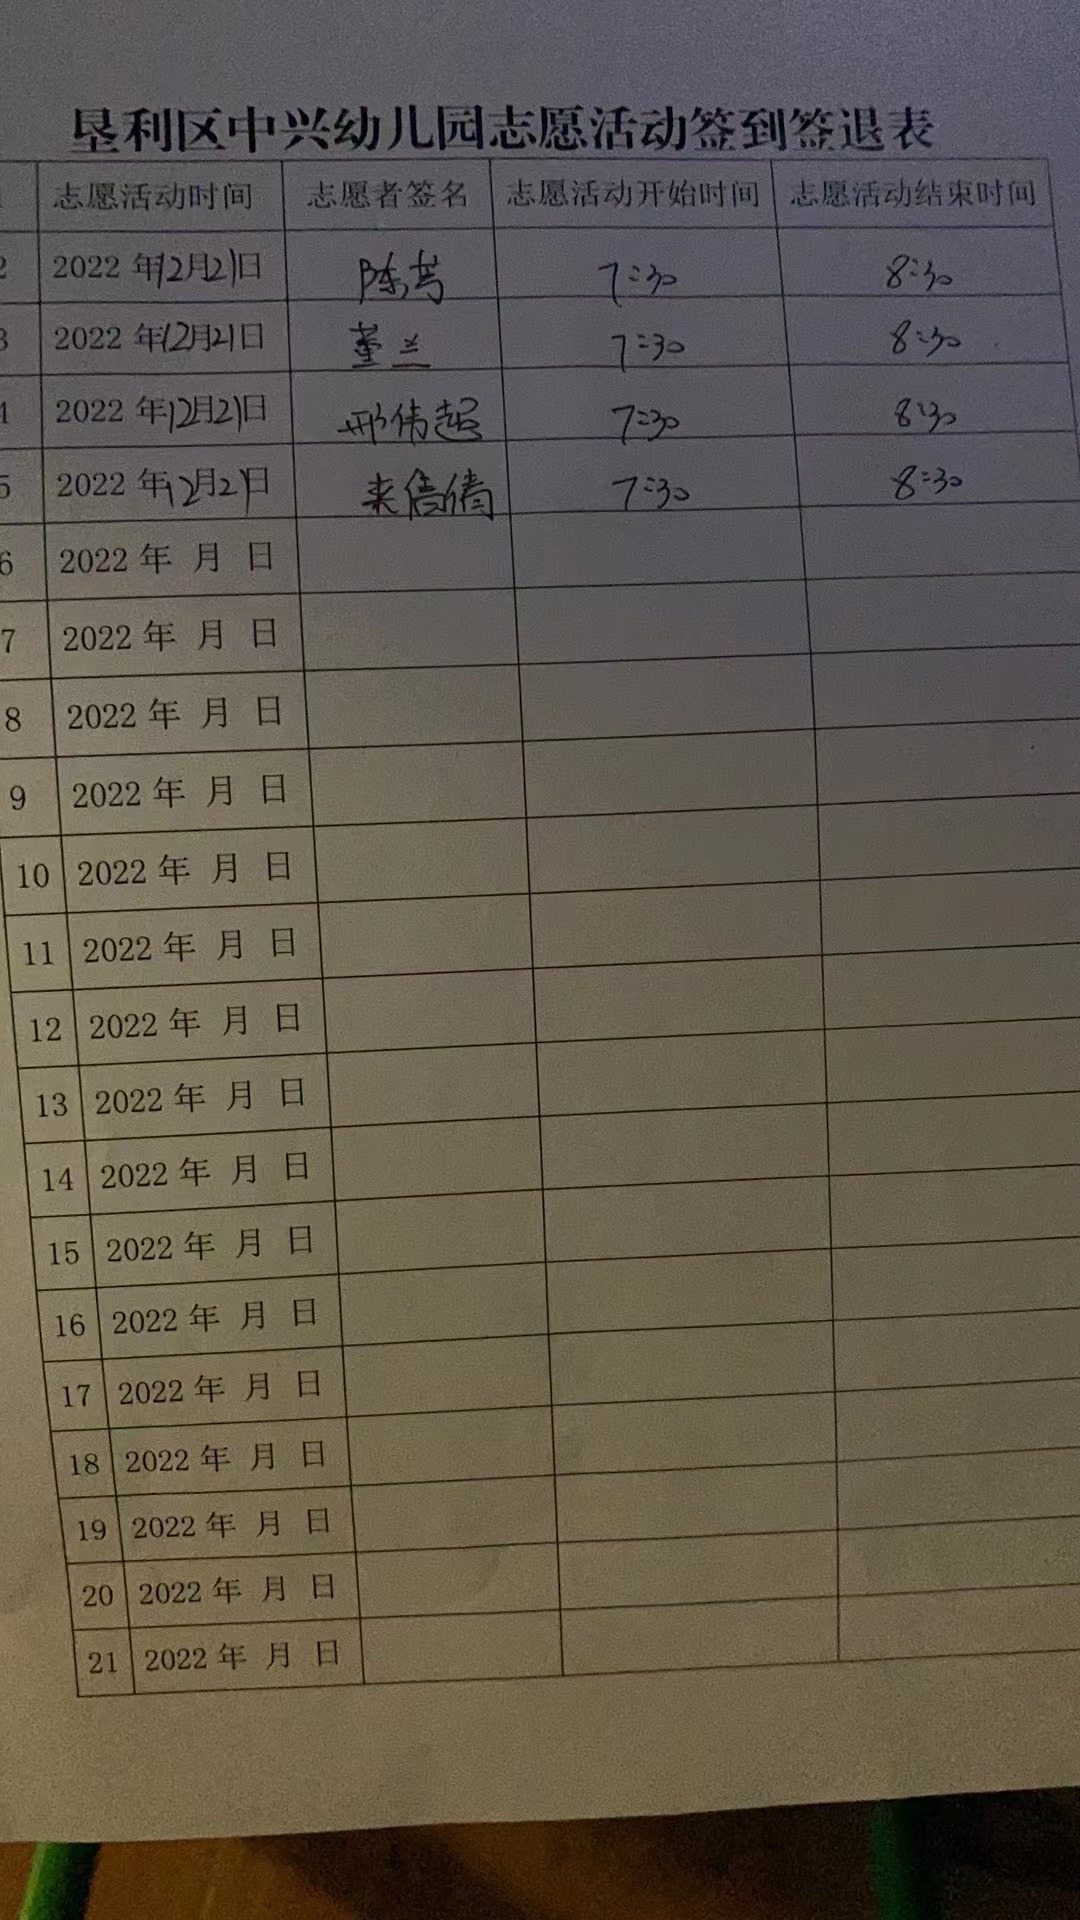 垦利区中兴幼儿园志愿活动签到签退表
志愿活动时间 志愿者签名 志愿活动开始时间 志愿活动结束时间
2 2022 年12月21日 陈芳 7:30 8:30
3 2022 年12月21日 董兰 7:30 8:30
4 2022 年12月21日 邢伟超 7:30 8:30
5 2022 年12月21日 来倩倩 7:30 8:30
6 2022 年 月 日
7 2022 年 月 日
8 2022 年 月 日
9 2022 年 月 日
10 2022 年 月 日
11 2022 年 月 日
12 2022 年 月 日
13 2022 年 月 日
14 2022 年 月 日
15 2022 年 月 日
16 2022 年 月 日
17 2022 年 月 日
18 2022 年 月 日
19 2022 年 月 日
20 2022 年 月 日
21 2022 年 月 日